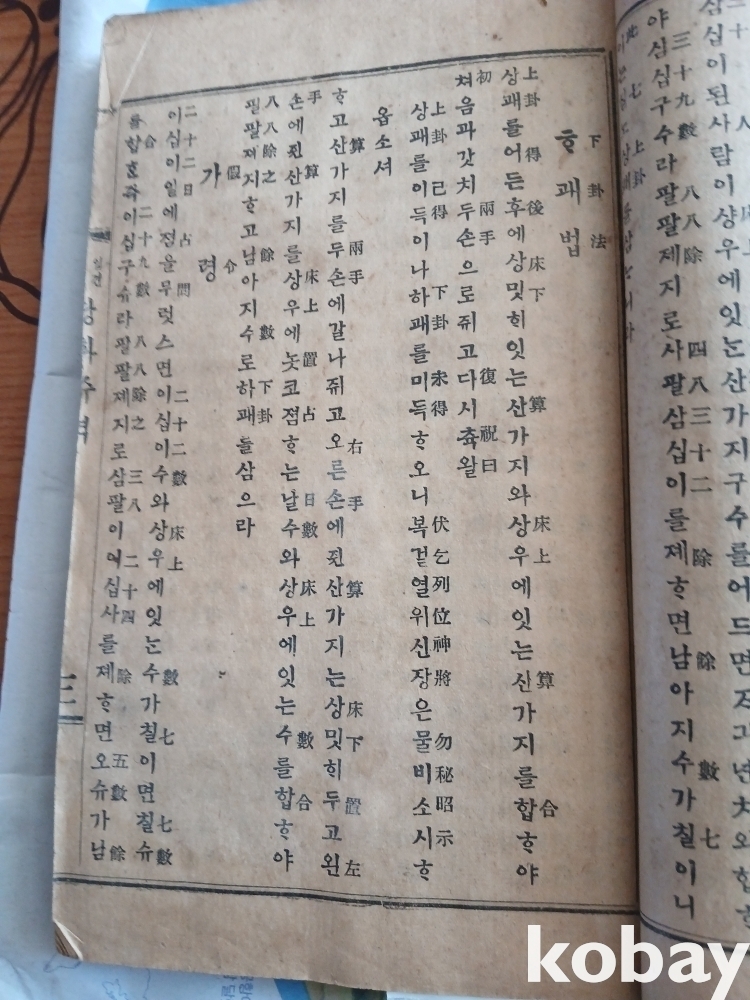 三十九數 八八除 四八三十二 除 餘 數 七
야십십구수라팔팔제지로사팔삼십이를제ᄒᆞ면남아지수가칠이니
下卦法
ᄒᆞ괘법
上卦 得 後 床下 算 床上 算 合
상괘를어든후에상밋히잇는산가지와상우에잇는산가지를합ᄒᆞ야
初 兩手 復 祝曰
처음과갓치두손으로쥐고다시츅왈
上卦 已得 下卦 未得 伏乞列位神將 勿秘昭示
상괘를이득이나하괘를미득ᄒᆞ오니복걸열위신장은물비소시ᄒᆞ
옵소셔
算 兩手 右手 算 床下 置 左
ᄒᆞ고산가지를두손에갈나쥐고오른손에쥔산가지는상밋히두고왼
手 算 床上 置 占 日數 床上 數 合
손에쥔산가지를상우에놋코졈ᄒᆞ는날수와상우에잇는수를합ᄒᆞ야
八八除之 餘 數 下卦
팔팔졔지ᄒᆞ고남아지수로하괘를삼으라
假令
가령
二十二日 占 問 二十二數 床上 數 七 七數
이십이일에졈을무럿스면이십이수와상우에잇는수가칠이면칠슈
合 二十九數 八八除之 三八 二十四 除 五數 餘
를합ᄒᆞ즉이십구슈라팔팔제지로삼팔이여십사를제ᄒᆞ면오슈가남
三
kobay